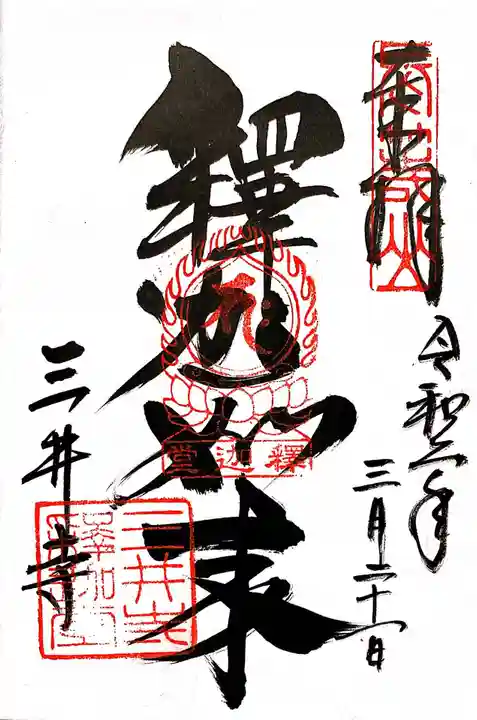 奉拝
令和二年
三月二十一日
釋迦如来
釋迦堂
三井寺
三井寺
釋迦堂